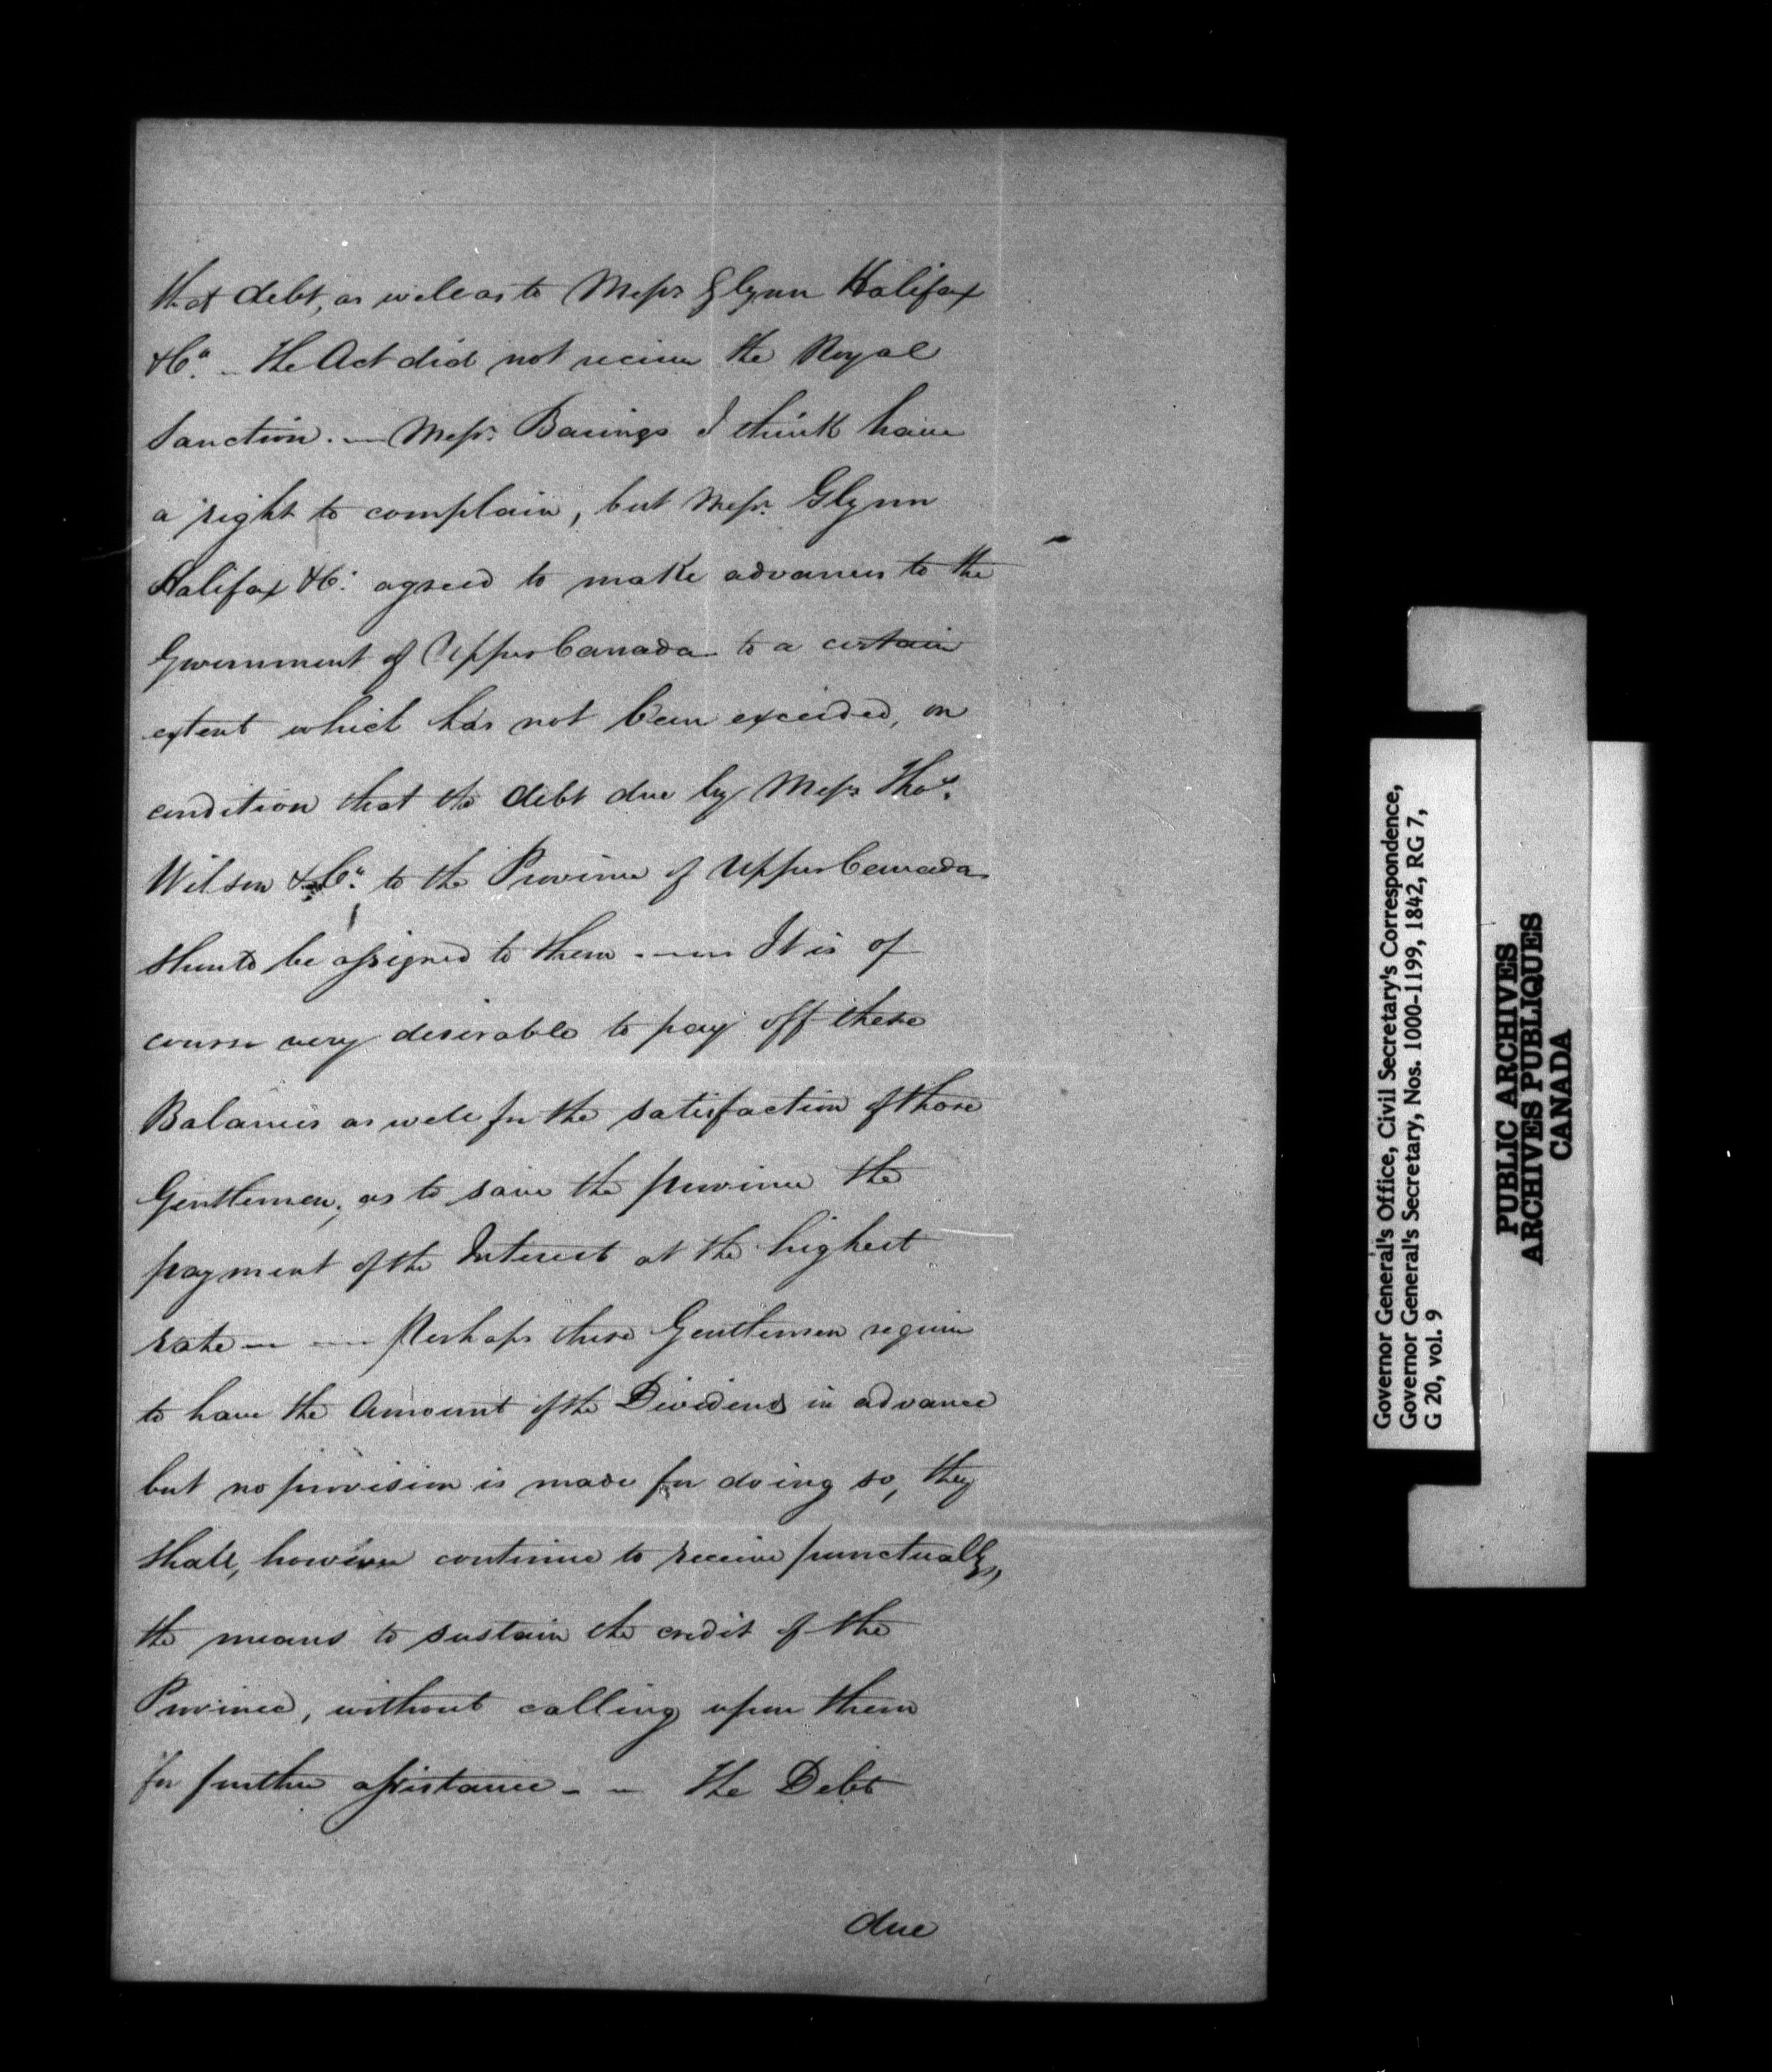 that debt, as well as to Messrs Glynn Halifax
& Co. - The Act did not receive the Royal
Sanction. — Messrs. Barings I think have
a right to complain, but Messrs. Glynn
Halifax & Co. agreed to make advances to the
Government of Upper Canada to a certain
extent which has not been exceeded, on
condition that the debt due by Messrs Thos.
Wilson & Co. to the Province of Upper Canada
should be assigned to them. —— It is of
course very desirable to pay off these
Balances as well for the satisfaction of those
Gentlemen, as to save the province the
payment of the Interest at the highest
rate — — Perhaps these Gentlemen require
to have the Amount of the Dividends in advance
but no provision is made for doing so, they
shall, however continue to receive punctually,
the means to sustain the credit of the
Province, without calling upon them
for further assistance - - The Debt
due
Governor General's Office, Civil Secretary's Correspondence,
Governor General's Secretary, Nos. 1000-1199, 1842, RG 7,
G 20, vol. 9
PUBLIC ARCHIVES
ARCHIVES PUBLIQUES
CANADA